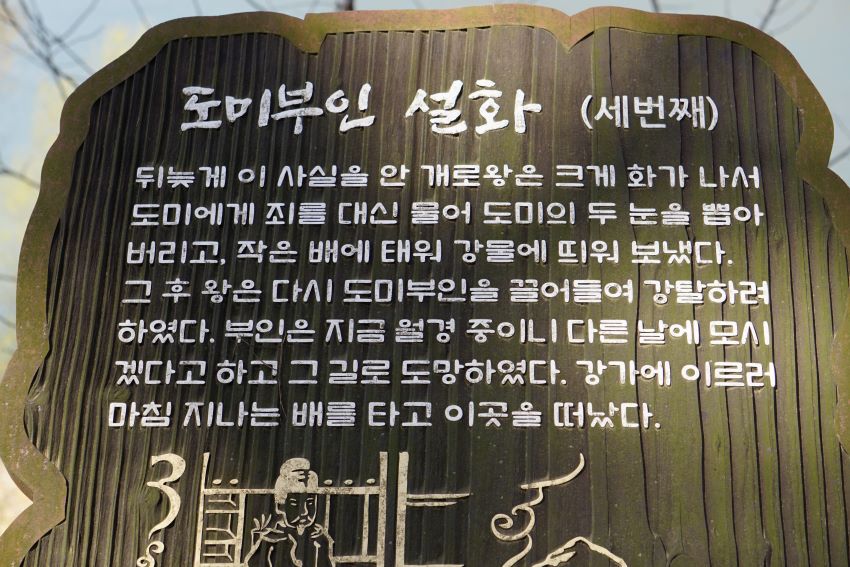 도미부인 설화 (세번째)
뒤늦게 이 사실을 안 개로왕은 크게 화가 나서
도미에게 죄를 대신 물어 도미의 두 눈을 뽑아
버리고, 작은 배에 태워 강물에 띄워 보냈다.
그 후 왕은 다시 도미부인을 끌어들여 강탈하려
하였다. 부인은 지금 월경 중이니 다른 날에 모시
겠다고 하고 그 길로 도망하였다. 강가에 이르러
마침 지나는 배를 타고 이곳을 떠났다.